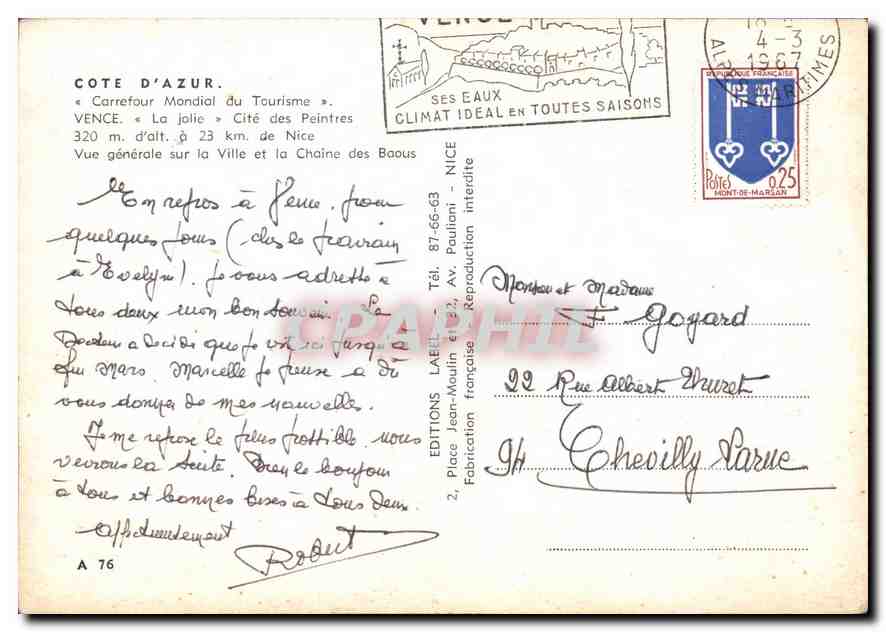 VENCE
SES EAUX
CLIMAT IDEAL EN TOUTES SAISONS
4-3
1967
ALPES MARITIMES
REPUBLIQUE FRANÇAISE
POSTES 0,25
MONT-DE-MARSAN
COTE D'AZUR.
« Carrefour Mondial du Tourisme ».
VENCE. « La jolie » Cité des Peintres
320 m. d'alt. à 23 km. de Nice
Vue générale sur la Ville et la Chaîne des Baous
En repos à Vence, pour
quelques jours (chez le
à Evelyne). Je vous adresse à
tous deux mon bon souvenir. Le
Docteur a décidé que je vit ici jusqu'à
fin Mars. Marcelle je pense a dû
vous donner de mes nouvelles.
Je me repose le plus possible. nous
verrons la suite. Bien le bonjour
à tous et bonnes bises à tous deux.
Affectueusement
Robert
A 76
EDITIONS LABEL - Tél. 87-66-63
2, Place Jean-Moulin et 32, Av. Pauliani - NICE
Fabrication française - Reproduction interdite
CPAPHIL
Monsieur et Madame
F Goyard
22 Rue Albert Thuret
94 Chevilly Larue